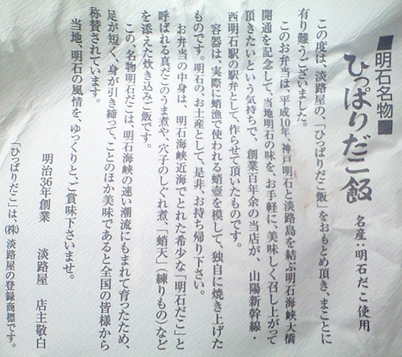 ■明石名物■
ひっぱりだこ飯
名産:明石だこ使用
この度は、淡路屋の、「ひっぱりだこ飯」をおもとめ頂き、まことに
有り難うございました。
このお弁当は、平成10年、神戸明石と淡路島を結ぶ明石海峡大橋
開通を記念して、当地明石の味を、お手軽に、美味しく召し上がって
頂きたいという気持ちで、創業百年余の当店が、山陽新幹線・
西明石駅の駅弁として、作らせて頂いたものです。
容器は、実際に蛸漁で使われる蛸壺を模して、独自に焼き上げた
ものです。明石の、お土産として、是非、お持ち帰り下さい。
お弁当の中身は、明石海峡近海でとれた希少な「明石だこ」と
呼ばれる真だこのうま煮や、穴子のしぐれ煮、「蛸天」(練りもの)など
を添えた炊き込みご飯です。
この、名物明石だこは、明石海峡の速い潮流にもまれて育ったため、
足が短く、身が引き締って、ことのほか美味であると全国の皆様から
称賛されています。
当地、明石の風情を、ゆっくりと、ご賞味下さいませ。
明治36年創業 淡路屋 店主敬白
「ひっぱりだこ」は、(株)淡路屋の登録商標です。